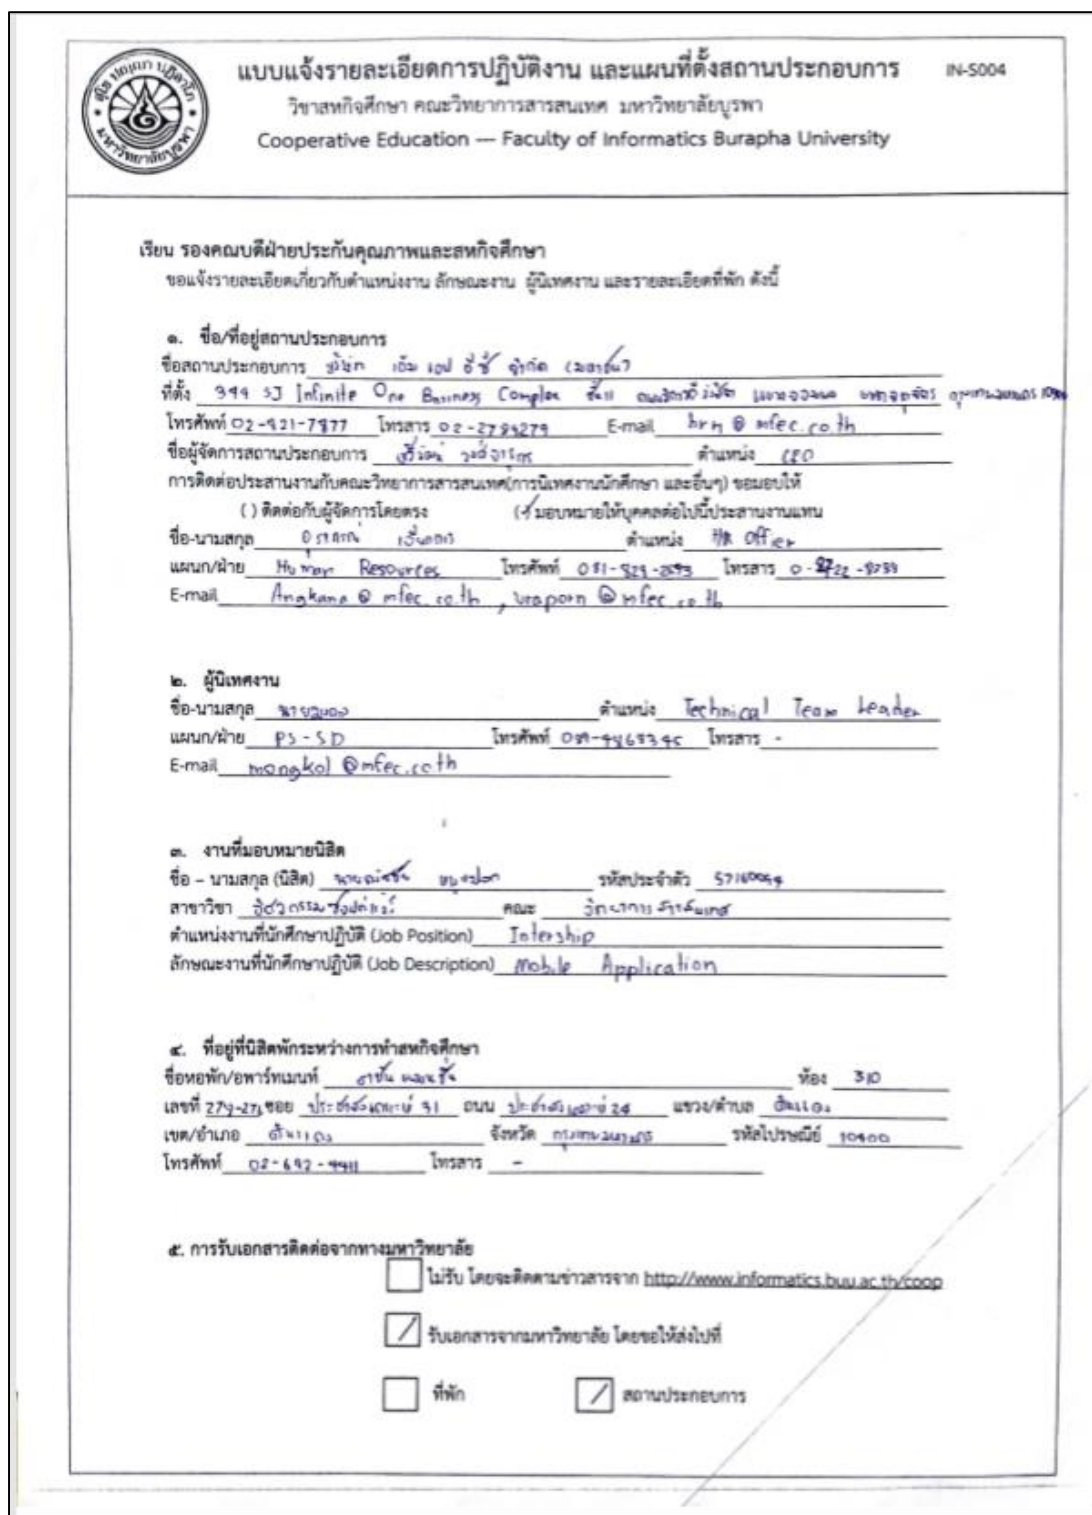 แบบแจ้งรายละเอียดการปฏิบัติงาน และแผนที่ตั้งสถานประกอบการ IN-S004
วิชาสหกิจศึกษา คณะวิทยาการสารสนเทศ มหาวิทยาลัยบูรพา
Cooperative Education — Faculty of Informatics Burapha University
เรียน รองคณบดีฝ่ายประกันคุณภาพและสหกิจศึกษา
ขอแจ้งรายละเอียดเกี่ยวกับตำแหน่งงาน ลักษณะงาน ผู้นิเทศงาน และรายละเอียดที่พัก ดังนี้
๑. ชื่อ/ที่อยู่สถานประกอบการ
ชื่อสถานประกอบการ บริษัท เอ็ม เอฟ อี ซี จำกัด (มหาชน)
ที่ตั้ง 349 SJ Infinite One Business Complex
โทรศัพท์ 02-821-7977 โทรสาร E-mail hrm@mfec.co.th
ชื่อผู้จัดการสถานประกอบการ ตำแหน่ง CEO
การติดต่อประสานงานกับคณะวิทยาการสารสนเทศ(การนิเทศงานนักศึกษา และอื่นๆ) ขอมอบให้
( ) ติดต่อกับผู้จัดการโดยตรง (✓) มอบหมายให้บุคคลต่อไปนี้ประสานงานแทน
ชื่อ-นามสกุล ตำแหน่ง HR Officer
แผนก/ฝ่าย Human Resources โทรศัพท์ โทรสาร
E-mail Angkana@mfec.co.th, uraporn@mfec.co.th
๒. ผู้นิเทศงาน
ชื่อ-นามสกุล ตำแหน่ง Technical Team Leader
แผนก/ฝ่าย PS-SD โทรศัพท์ โทรสาร -
E-mail mongkol@mfec.co.th
๓. งานที่มอบหมายนิสิต
ชื่อ – นามสกุล (นิสิต) รหัสประจำตัว
สาขาวิชา วิศวกรรมซอฟต์แวร์ คณะ วิทยาการสารสนเทศ
ตำแหน่งงานที่นักศึกษาปฏิบัติ (Job Position) Intership
ลักษณะงานที่นักศึกษาปฏิบัติ (Job Description) Mobile Application
๔. ที่อยู่ที่นิสิตพักระหว่างการทำสหกิจศึกษา
ชื่อหอพัก/อพาร์ทเมนท์ ห้อง 310
เลขที่ ซอย ถนน แขวง/ตำบล ดินแดง
เขต/อำเภอ ดินแดง จังหวัด กรุงเทพมหานคร รหัสไปรษณีย์ 10400
โทรศัพท์ 02-692-9911 โทรสาร -
๕. การรับเอกสารติดต่อจากทางมหาวิทยาลัย
ไม่รับ โดยจะติดตามข่าวสารจาก http://www.informatics.buu.ac.th/coop
รับเอกสารจากมหาวิทยาลัย โดยขอให้ส่งไปที่
ที่พัก สถานประกอบการ